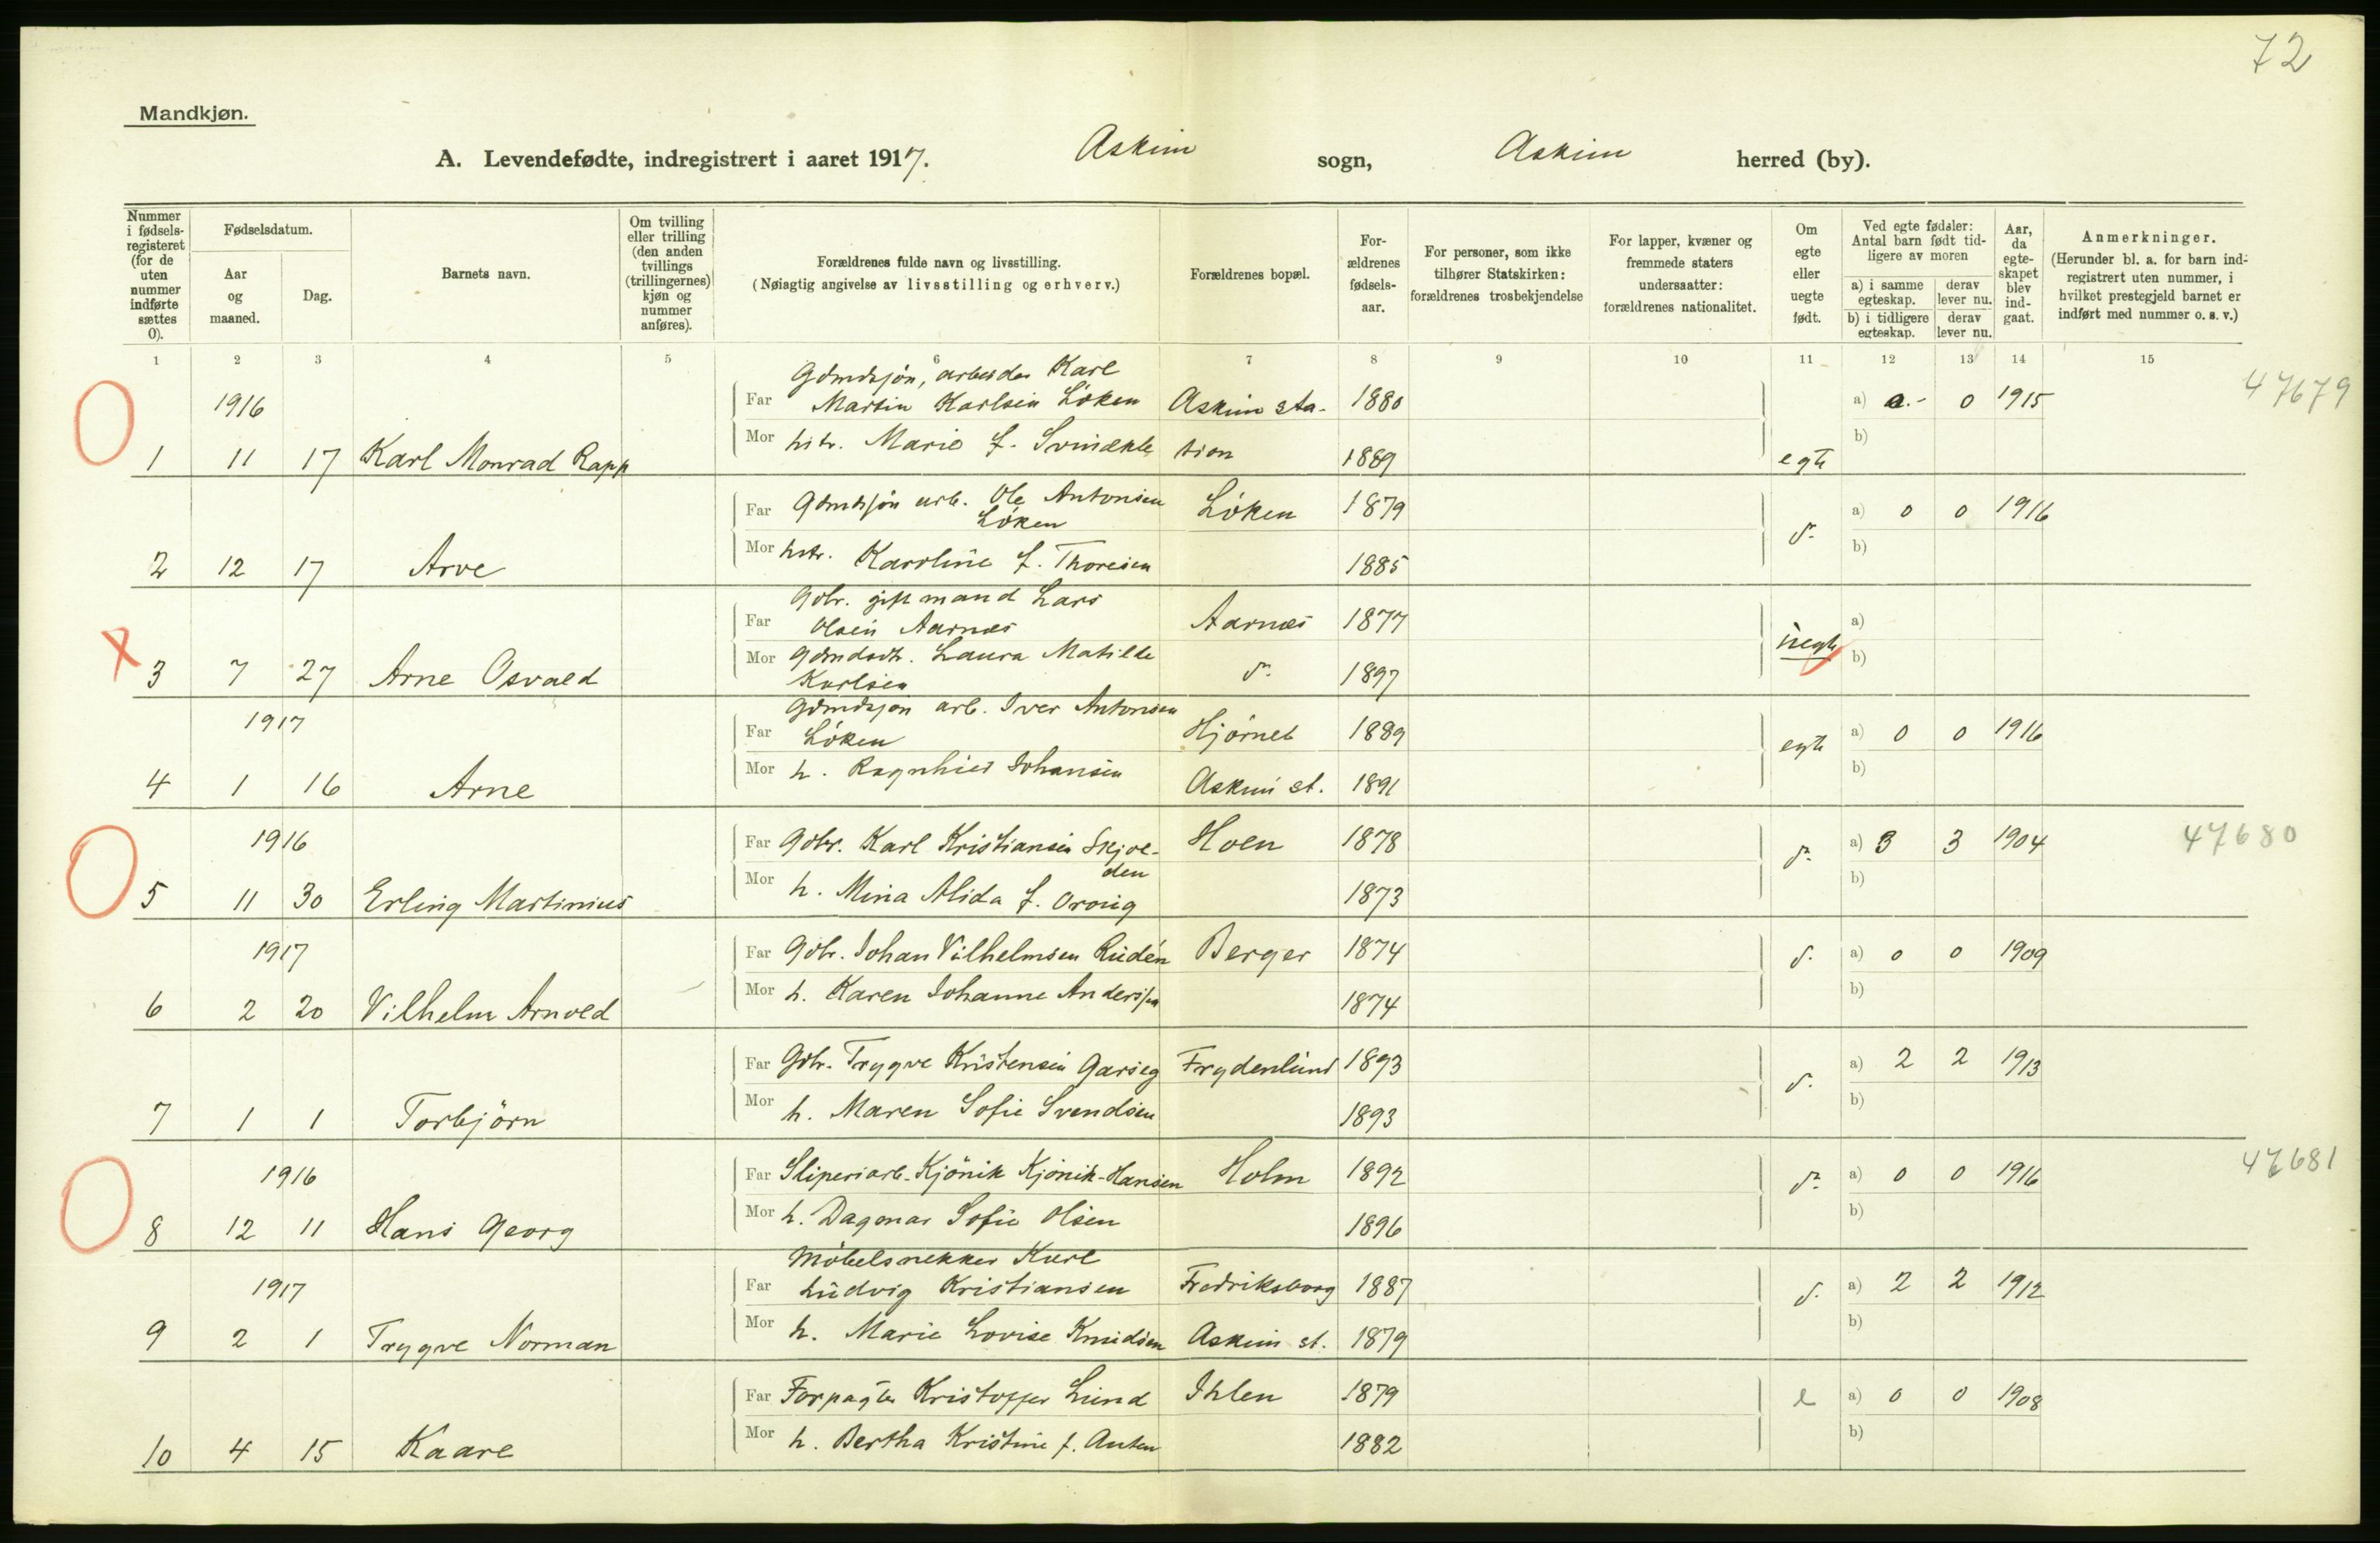 72
Mandkjøn.
A. Levendefødte, indregistrert i aaret 1917. Askim sogn, Askim herred (by).
Nummer i fødsels-registeret (for de uten nummer indførte sættes 0).
Fødselsdatum.
Aar og maaned.
Dag.
Barnets navn.
Om tvilling eller trilling (den anden tvillings (trillingernes) kjøn og nummer anføres).
Forældrenes fulde navn og livsstilling.
(Nøiagtig angivelse av livsstilling og erhverv.)
Forældrenes bopæl.
For-ældrenes fødsels-aar.
For personer, som ikke tilhører Statskirken: forældrenes trosbekjendelse
For lapper, kvæner og fremmede staters undersaatter: forældrenes nationalitet.
Om egte eller uegte født.
Ved egte fødsler: Antal barn født tid-ligere av moren
a) i samme egteskap. derav lever nu.
b) i tidligere egteskap. derav lever nu.
Aar, da egte-skapet blev ind-gaat.
Anmerkninger.
(Herunder bl. a. for barn ind-registrert uten nummer, i hvilket prestegjeld barnet er indført med nummer o. s. v.)
1 2 3 4 5 6 7 8 9 10 11 12 13 14 15
Gdmdsjøn, arbeider Karl
1916 Far Martin Karlsen Løken Askim sta- 1880 a) 0 1915 47679
1 11 17 Karl Monrad Rapp Mor hstr. Marie f. tion 1889 egte b)
Far Gdmdsjøn arb. Ole Antonsen Løken 1879 a) 0 0 1916
Løken
2 12 17 Arve Mor hstr. Karoline f. Thoresen 1885 d. b)
Gdbr. gift mand Lars
Far Olsen Aarnæs Aarnæs 1877 a)
3 7 27 Arne Osvald Mor Gdmdsdtr. Laura Matilde d. 1897 uegte b)
Karlsen
Gdmdsjøn arb. Iver Antonsen
1917 Far Løken Hjørnet 1889 a) 0 0 1916
4 1 16 Arne Mor h. Ragnhild Johansen Askim st. 1891 egte b)
1916 Far Gdbr. Karl Kristiansen Skjol- Hoen 1878 a) 3 3 1904 47680
den
5 11 30 Erling Martinius Mor h. Mina Alida f. 1873 d. b)
1917 Far Gdbr. Johan Vilhelmsen Rudén Berger 1874 a) 0 0 1909
6 2 20 Vilhelm Arnold Mor h. Karen Johanne Anderssen 1874 d. b)
Far Gdbr. Trygve Kristensen Garseg Frydenlund 1893 a) 2 2 1913
7 1 1 Torbjørn Mor h. Maren Sofie Svendsen 1893 d. b)
1916 Far Sliperiarb. Kjønik Kjønik-Hansen Holm 1892 a) 0 0 1916 47681
8 12 11 Hans Georg Mor h. Dagmar Sofie Olsen 1896 d. b)
Møbelsnekker Karl
1917 Far Ludvig Kristiansen Fredriksborg 1887 a) 2 2 1912
9 2 1 Trygve Norman Mor h. Marie Lovise Knudsen Askim st. 1879 d. b)
Far Forpagter Kristoffer Lund Ihlen 1879 a) 0 0 1908
10 4 15 Kaare Mor h. Bertha Kristine f. Anten 1882 e b)